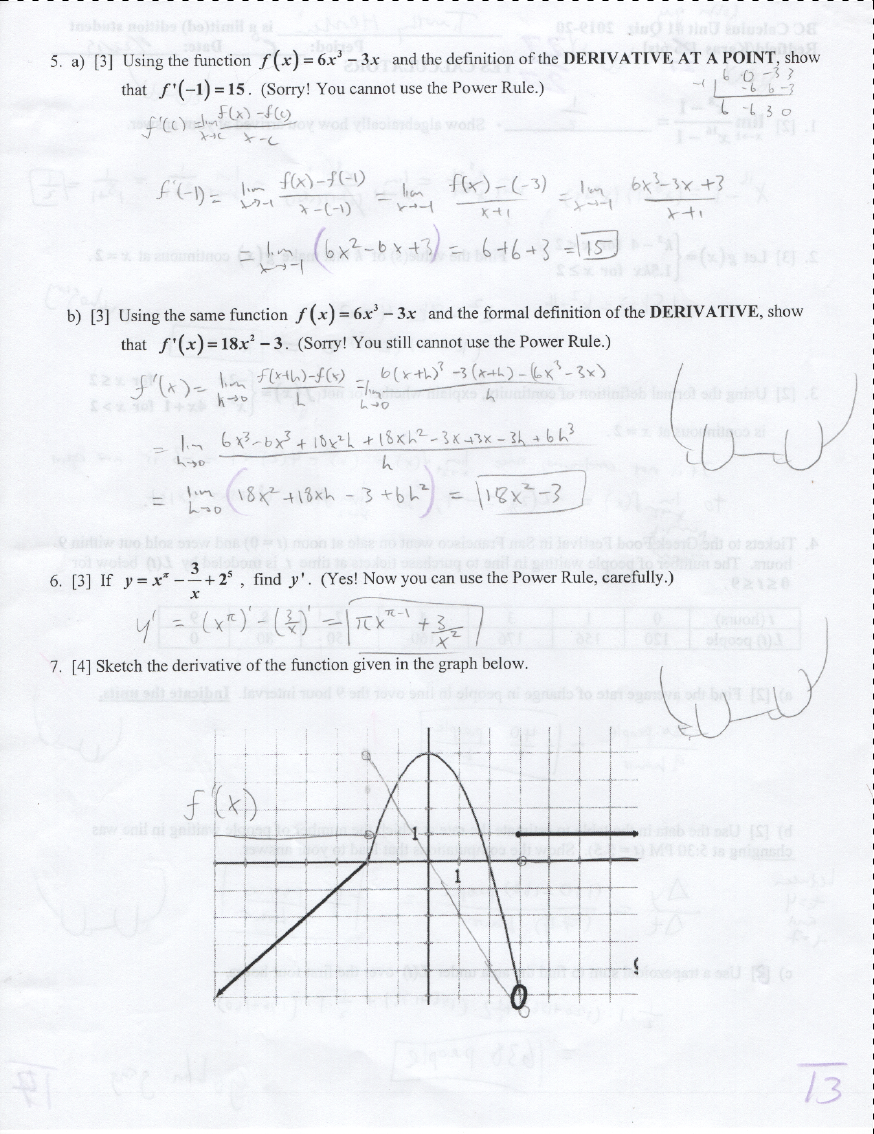 5. a) [3] Using the function f(x) = 6x³ − 3x and the definition of the DERIVATIVE AT A POINT, show
that f'(−1) = 15. (Sorry! You cannot use the Power Rule.)
−1 | 6 0 −3 3
−6 6 −3
6 −6 3 0
f'(c) = lim x→c (f(x) − f(c))/(x − c)
f'(−1) = lim x→−1 (f(x) − f(−1))/(x − (−1)) = lim x→−1 (f(x) − (−3))/(x+1) = lim x→−1 (6x³ − 3x + 3)/(x+1)
= lim x→−1 (6x² − 6x + 3) = 6 + 6 + 3 = 15
b) [3] Using the same function f(x) = 6x³ − 3x and the formal definition of the DERIVATIVE, show
that f'(x) = 18x² − 3. (Sorry! You still cannot use the Power Rule.)
f'(x) = lim h→0 (f(x+h) − f(x))/h = lim h→0 (6(x+h)³ − 3(x+h) − (6x³ − 3x))/h
= lim h→0 (6x³ − 6x³ + 18x²h + 18xh² − 3x + 3x − 3h + 6h³)/h
= lim h→0 (18x² + 18xh − 3 + 6h²) = 18x² − 3
6. [3] If y = x^π − 3/x + 2⁵ , find y'. (Yes! Now you can use the Power Rule, carefully.)
y' = (x^π)' − (3/x)' = πx^(π−1) + 3/x²
7. [4] Sketch the derivative of the function given in the graph below.
f'(x)
1
1
13